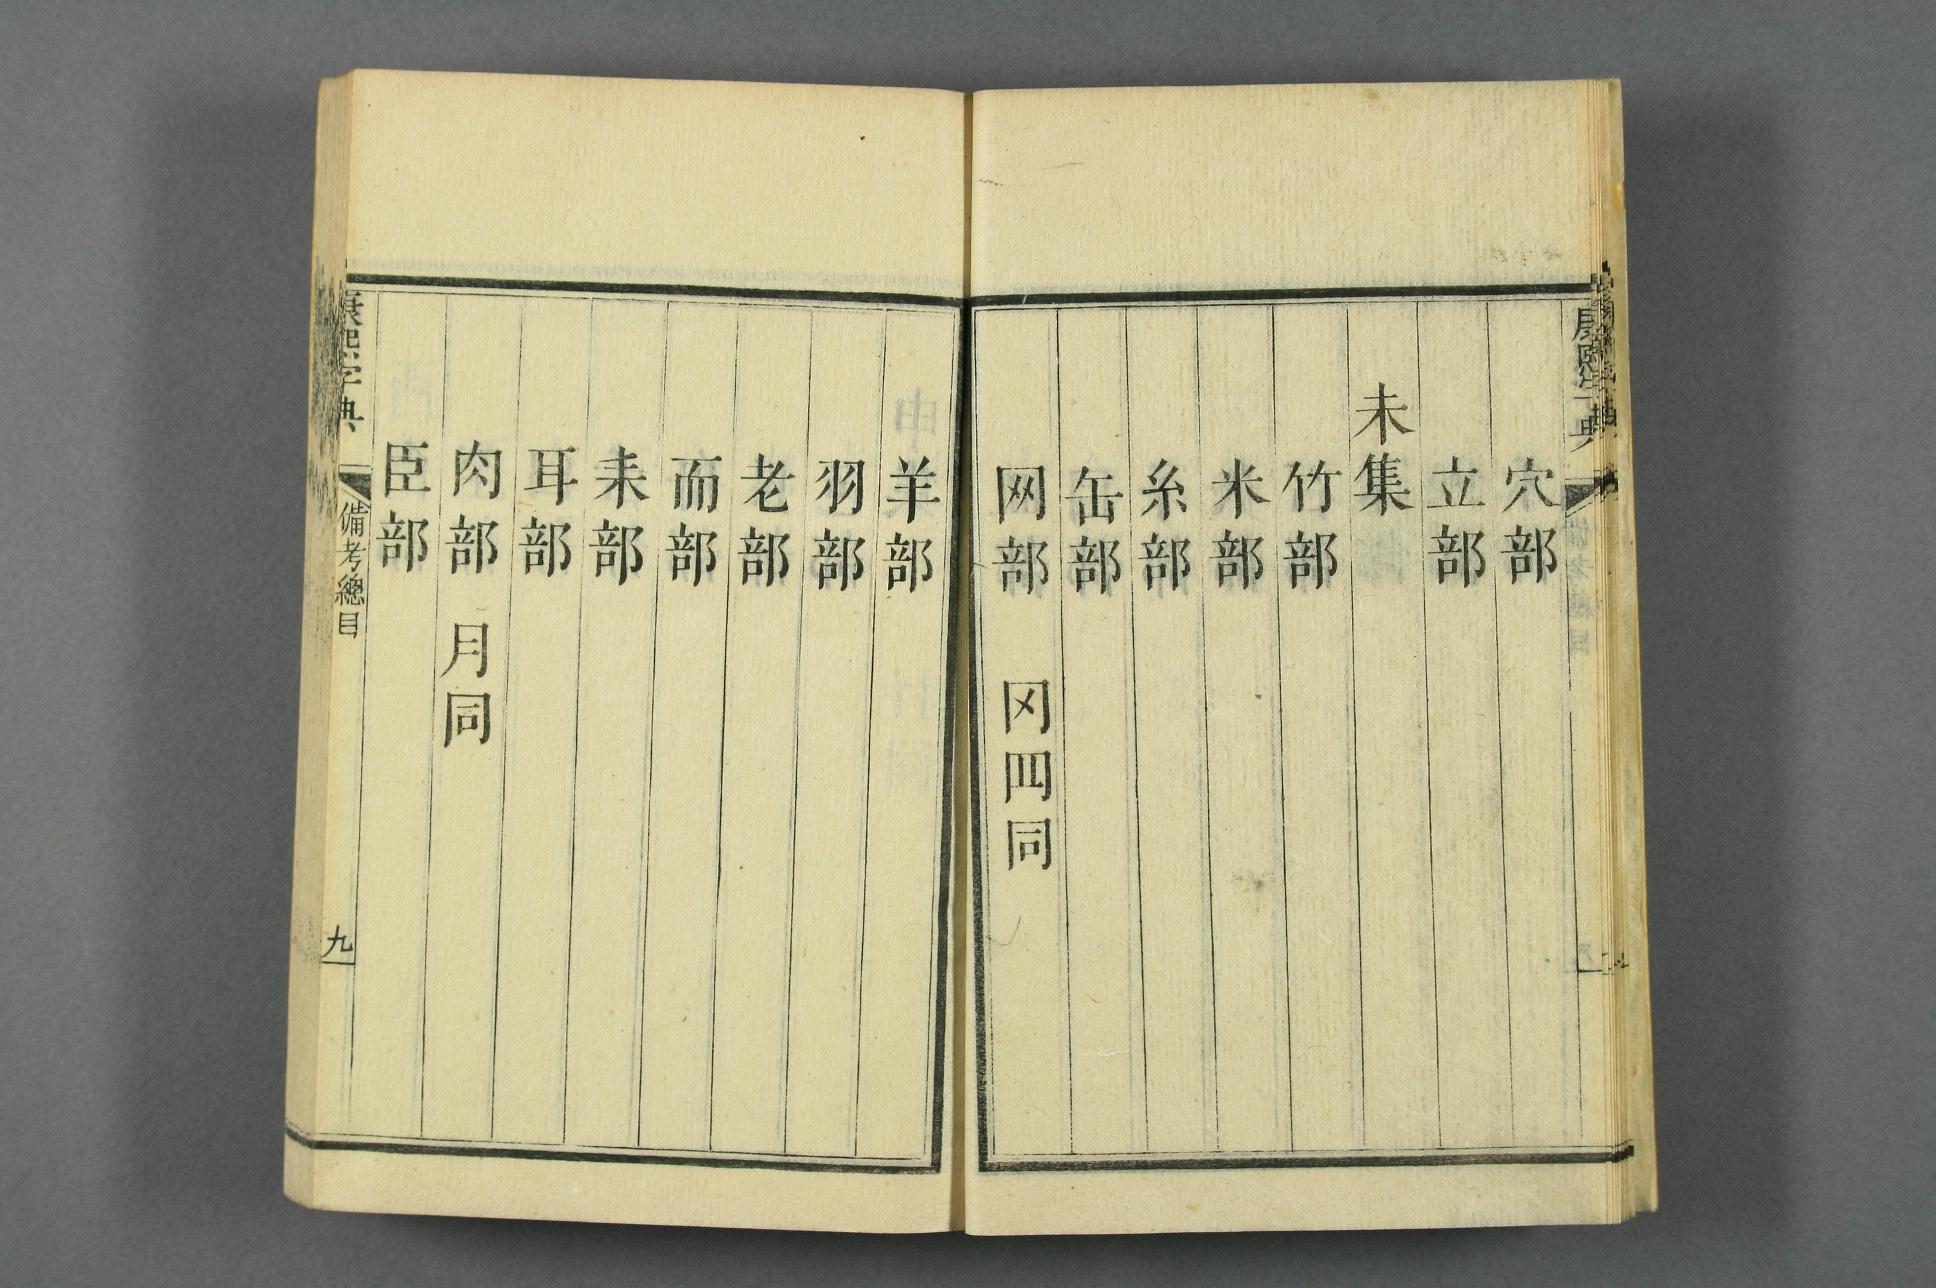 穴部
立部
未集
竹部
米部
糸部
缶部
网部 㓁罒同
羊部
羽部
老部
而部
耒部
耳部
肉部 月同
臣部
康熙字典
備考總目
九